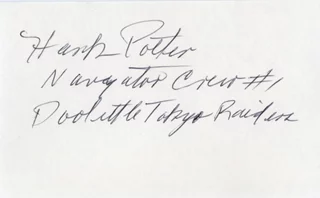 Hank Potter
Navigator Crew #1
Doolittle Tokyo Raiders